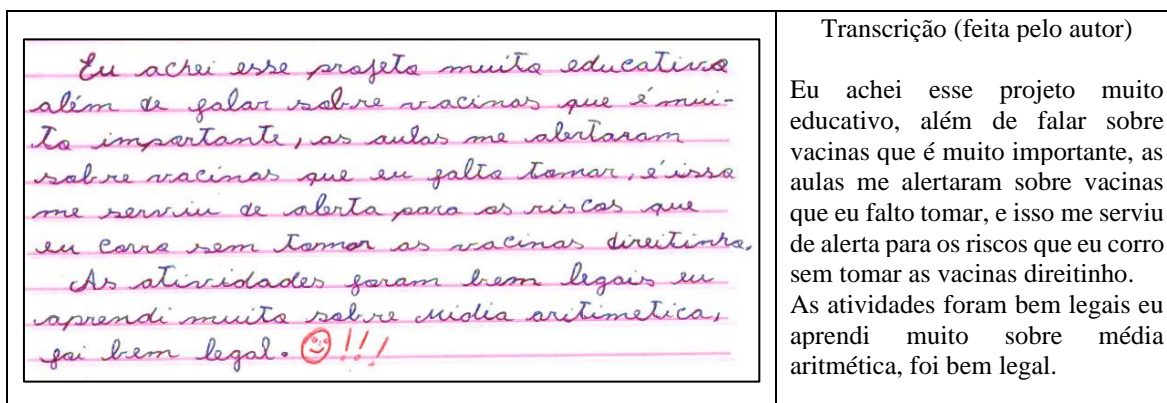 Eu achei esse projeto muito educativo
além de falar sobre vacinas que é mui-
to importante, as aulas me alertaram
sobre vacinas que eu falto tomar, é isso
me serviu de alerta para os riscos que
eu corro sem tomar as vacinas direitinho.
As atividades foram bem legais eu
aprendi muito sobre midia aritimetica,
foi bem legal. !!!
Transcrição (feita pelo autor)
Eu achei esse projeto muito
educativo, além de falar sobre
vacinas que é muito importante, as
aulas me alertaram sobre vacinas
que eu falto tomar, e isso me serviu
de alerta para os riscos que eu corro
sem tomar as vacinas direitinho.
As atividades foram bem legais eu
aprendi muito sobre média
aritmética, foi bem legal.